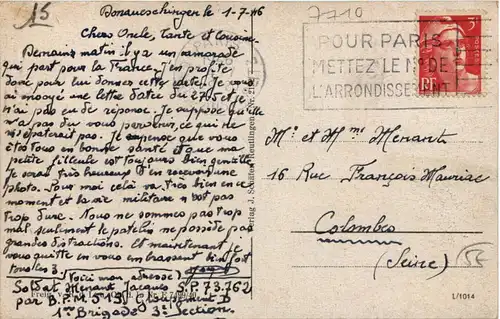 15
7710
Donaueschingen le 1-7-46
Chers Oncle, Tante et Cousine.
Demains matin il ya un camarade
qui part pour la France. J'en profite
donc pour lui donner cette Je vous
ai envoyé une lettre datée du 27/5 et je
n'ai pas eu de réponse. Je suppose qu'elle
n'a pas du vous parvenir, ce qui ne
m'épaterait pas. Je pense que vous
êtes tous en bonne santé et que ma
petite filleule est toujours bien gentille.
Je serai très heureux d'en recevoir une
photo. Pour moi cela va très bien en ce
moment et la vie militaire n'est pas
trop dure. Nous ne sommes pas trop
mal seulement le patelin ne possède pas
grandes distractions. Et maintenant je
vous quitte en vous embrassant bien fort
tous les 3.
(Voici mon adresse)
Soldat Menant Jacques S.P. 73.762
par B.P.M 513 Groupement D
1re Brigade 3e Section.
POUR PARIS
METTEZ LE N° DE
L'ARRONDISSEMENT
3F
RF
Mr et Mme Menant
16 Rue François Mauriac
Colombes
(Seine)
5€
Verlag J. Schäfer, Reutlingen
L/1014